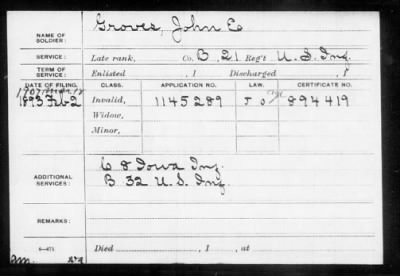 NAME OF SOLDIER: Groves, John E
SERVICE: Late rank, Co. B, 21 Reg't U. S. Inf.
TERM OF SERVICE: Enlisted , 1 Discharged , 1
DATE OF FILING. CLASS. APPLICATION NO. LAW. CERTIFICATE NO.
1893 Feb 2 Invalid, 1145289 894419
Widow,
Minor,
ADDITIONAL SERVICES: C 8 Iowa Inf.
B 32 U. S. Inf.
REMARKS:
6—471 Died , 1 , at